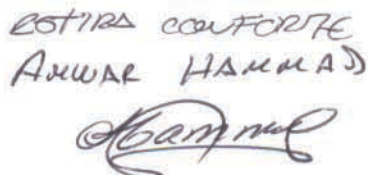 RETIRA CONFORME
ANWAR HAMMAD
Hammad